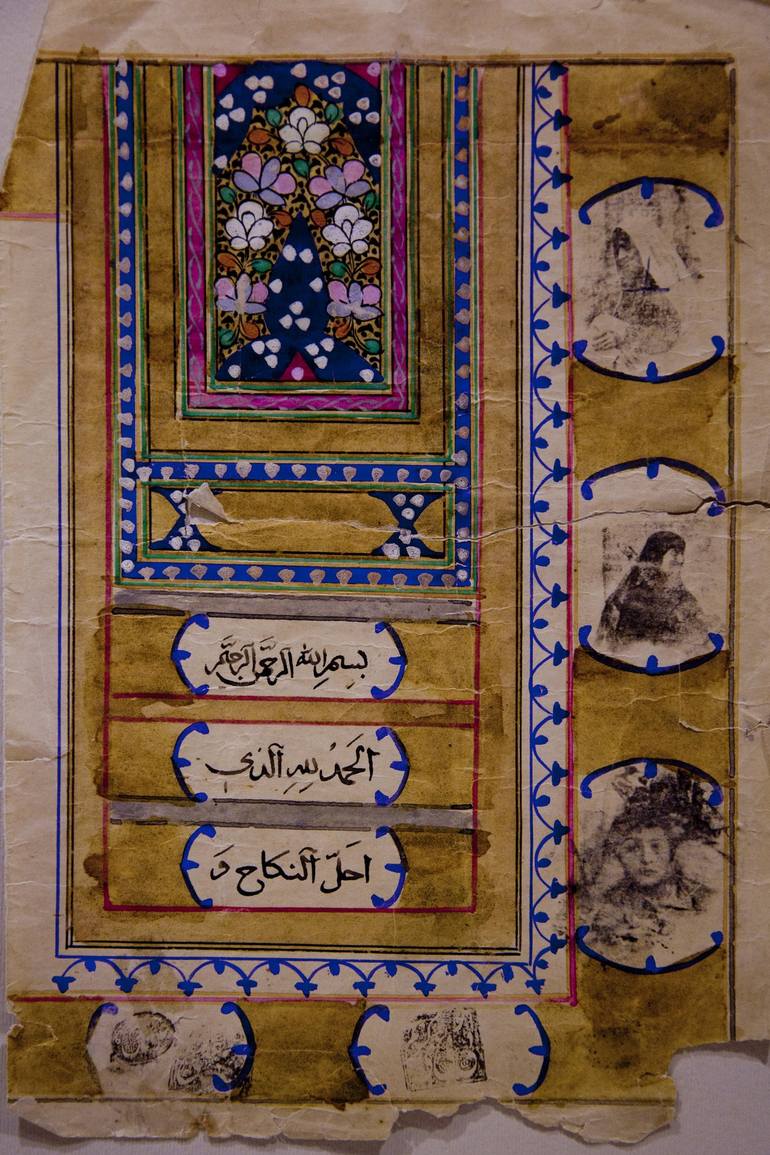 بسم الله الرحمن الرحیم
الحمد لله الذی
احلّ النکاح وَ